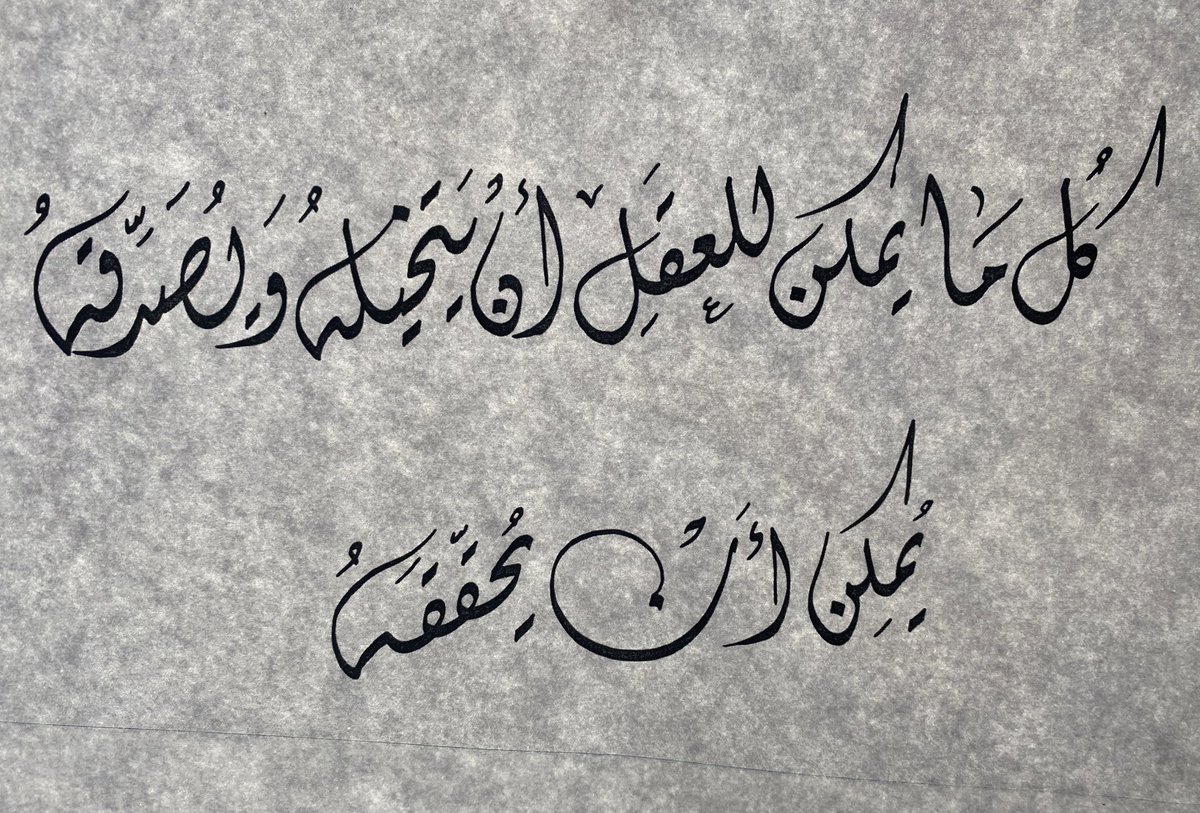 كُل مَا يمكن للعِقَلِ أنْ يَتَخيلهُ وَيُصَدِّقهُ
يُمكِن أَنْ يُحقّقَهُ